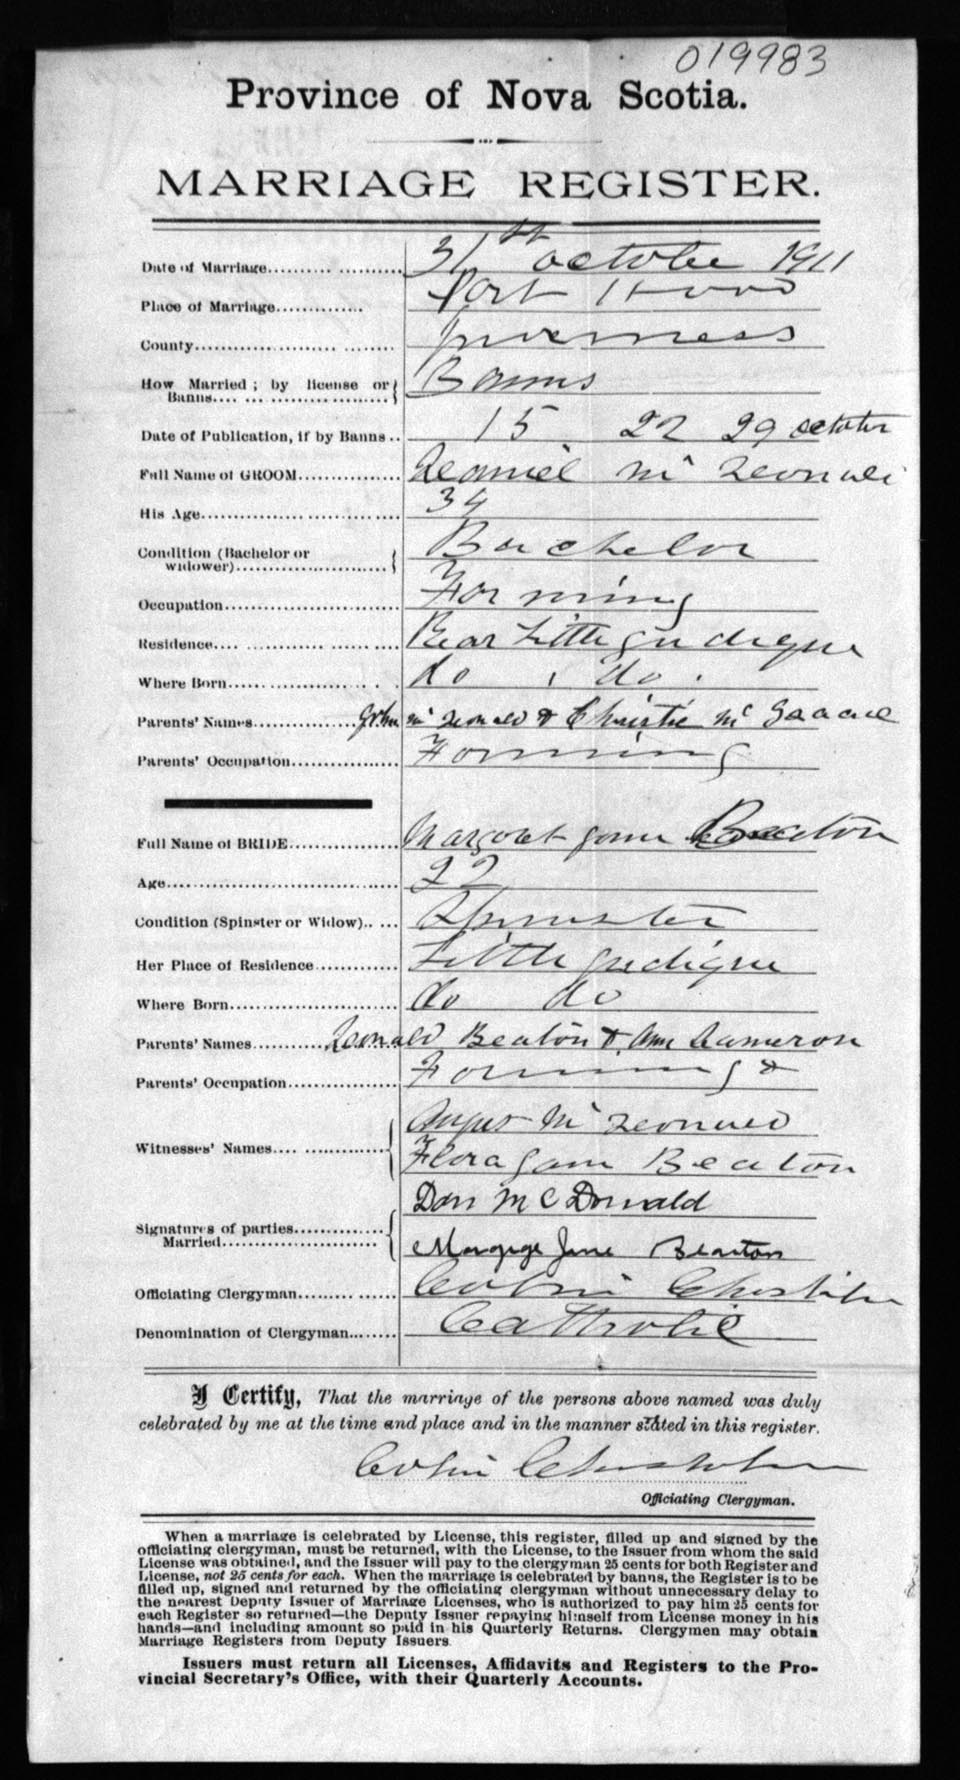 019983
Province of Nova Scotia.
MARRIAGE REGISTER.
Date of Marriage.......... ............ 31st October 1911
Place of Marriage............. Port Hood
County..................... ........ Inverness
How Married ; by license or Banns.... ... ................. Banns
Date of Publication, if by Banns .. 15 22 29 October
Full Name of GROOM............... Daniel Mc Donald
His Age............................... 34
Condition (Bachelor or widower)....................... Bachelor
Occupation........................... Farming
Residence.... ............ ...... .... Rear Little Judique
Where Born.................... . . . do do.
Parents' Names............... John Mc Donald & Christie Mc Isaac
Parents' Occupation................. Farming
Full Name of BRIDE................. Margaret Jane Beaton
Age................................... 22
Condition (Spinster or Widow).. .... Spinster
Her Place of Residence............. Little Judique
Where Born.......................... do do
Parents' Names............. Donald Beaton & Ann Cameron
Parents' Occupation................. Farming
Witnesses' Names.... ............. Angus Mc Donald
Flora Jane Beaton
Signatures of parties.............. Dan McDonald
Married........................ Jane Beaton
Officiating Clergyman......... ...... Colin Chisholm
Denomination of Clergyman........ Catholic
I Certify, That the marriage of the persons above named was duly
celebrated by me at the time and place and in the manner stated in this register.
Colin Chisholm
Officiating Clergyman.
When a marriage is celebrated by License, this register, filled up and signed by the
officiating clergyman, must be returned, with the License, to the Issuer from whom the said
License was obtained, and the Issuer will pay to the clergyman 25 cents for both Register and
License, not 25 cents for each. When the marriage is celebrated by banns, the Register is to be
filled up, signed and returned by the officiating clergyman without unnecessary delay to
the nearest Deputy Issuer of Marriage Licenses, who is authorized to pay him 25 cents for
each Register so returned—the Deputy Issuer repaying himself from License money in his
hands—and including amount so paid in his Quarterly Returns. Clergymen may obtain
Marriage Registers from Deputy Issuers
Issuers must return all Licenses, Affidavits and Registers to the Pro-
vincial Secretary's Office, with their Quarterly Accounts.